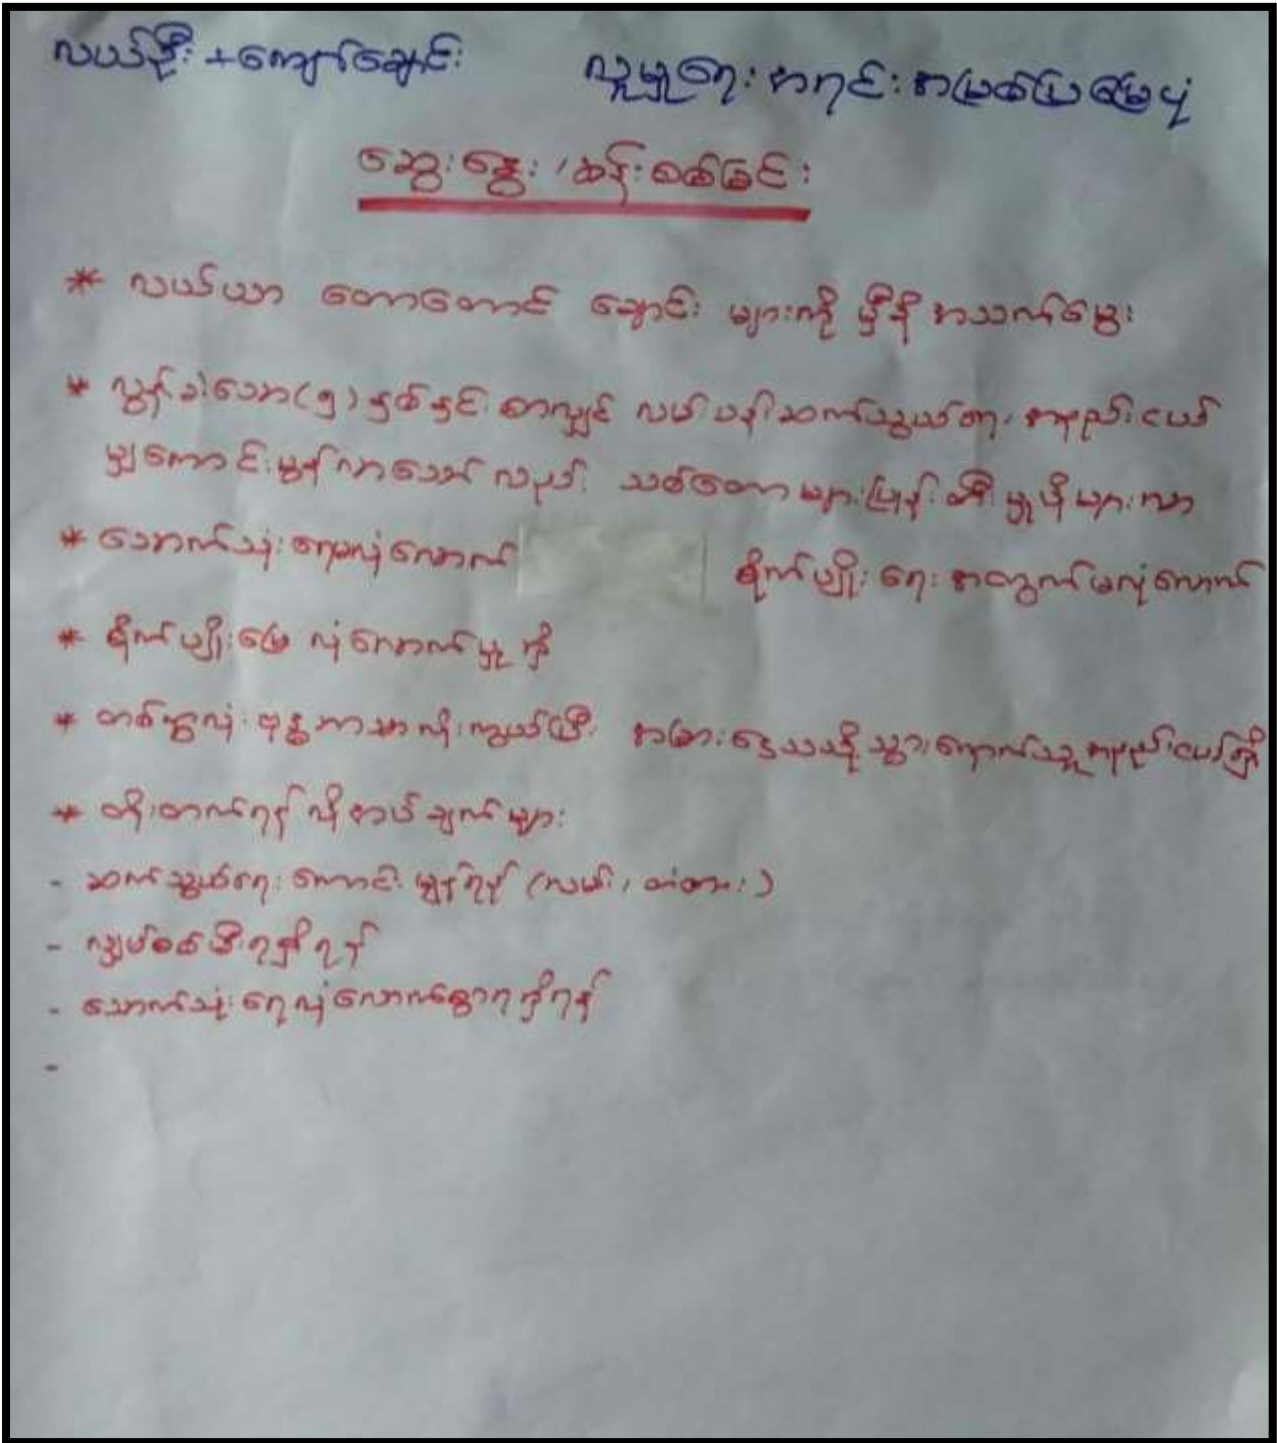 လယ်ဦး + ကျော်ချောင်း လူမှုရေး အရင်းအမြစ်ပြမြေပုံ
ဆွေးနွေး / ဆန်းစစ်ခြင်း
* လယ်ယာ တောတောင် ချောင်း များကို မှီခို အသက်မွေး
* လွန်ခဲ့သော (၅) နှစ်နှင့် စာလျှင် လမ်းပန်းဆက်သွယ်ရေး အနည်းငယ်
မျှကောင်းမွန်လာသော်လည်း သစ်တောများပြုန်းတီးမှုပိုများလာ
* သောက်သုံးရေမလုံလောက် စိုက်ပျိုးရေးအတွက်မလုံလောက်
* စိုက်ပျိုးမြေ လုံလောက်မှုရှိ
* တစ်ရွာလုံးဗုဒ္ဓဘာသာကိုးကွယ်ပြီး အခြားဒေသသို့သွားရောက်သူအနည်းငယ်ရှိ
* တိုးတက်ရန် လိုအပ်ချက်များ
- ဆက်သွယ်ရေး ကောင်းမွန်ရန် (လမ်း၊ တံတား)
- လျှပ်စစ်မီးရရှိရန်
- သောက်သုံးရေလုံလောက်စွာရရှိရန်
-